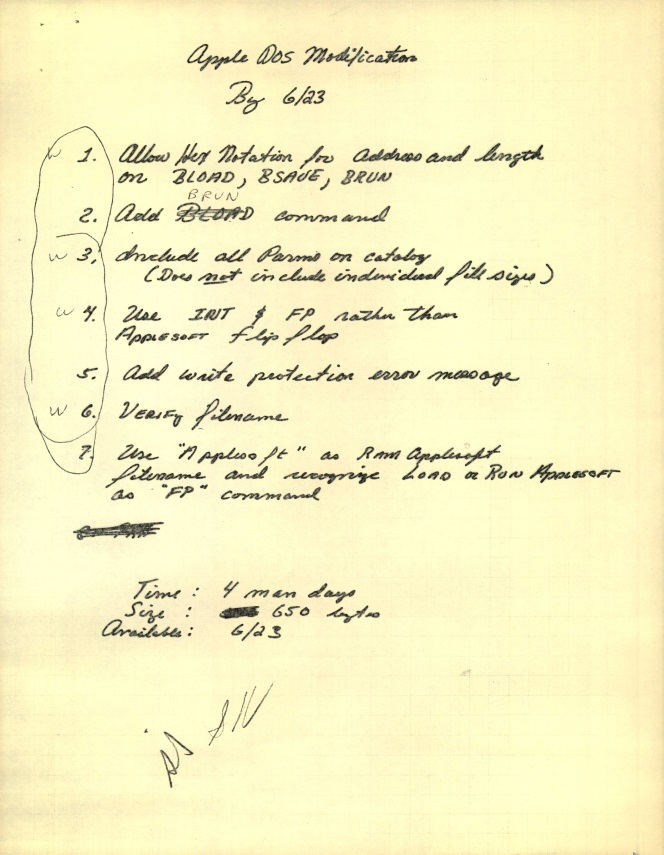 Apple DOS Modification
By 6/23
W 1. Allow Hex Notation for Address and length
on BLOAD, BSAVE, BRUN
BRUN
2. Add BLOAD command
W 3. Include all Parms on catalog
(Does not include individual file sizes)
W 4. Use INT & FP rather than
APPLESOFT flip flop
5. Add write protection error message
W 6. VERIFY filename
7. Use "Applesoft" as RAM Applesoft
filename and recognize LOAD or RUN APPLESOFT
as "FP" command
Time: 4 man days
Size: 650 bytes
Available: 6/23